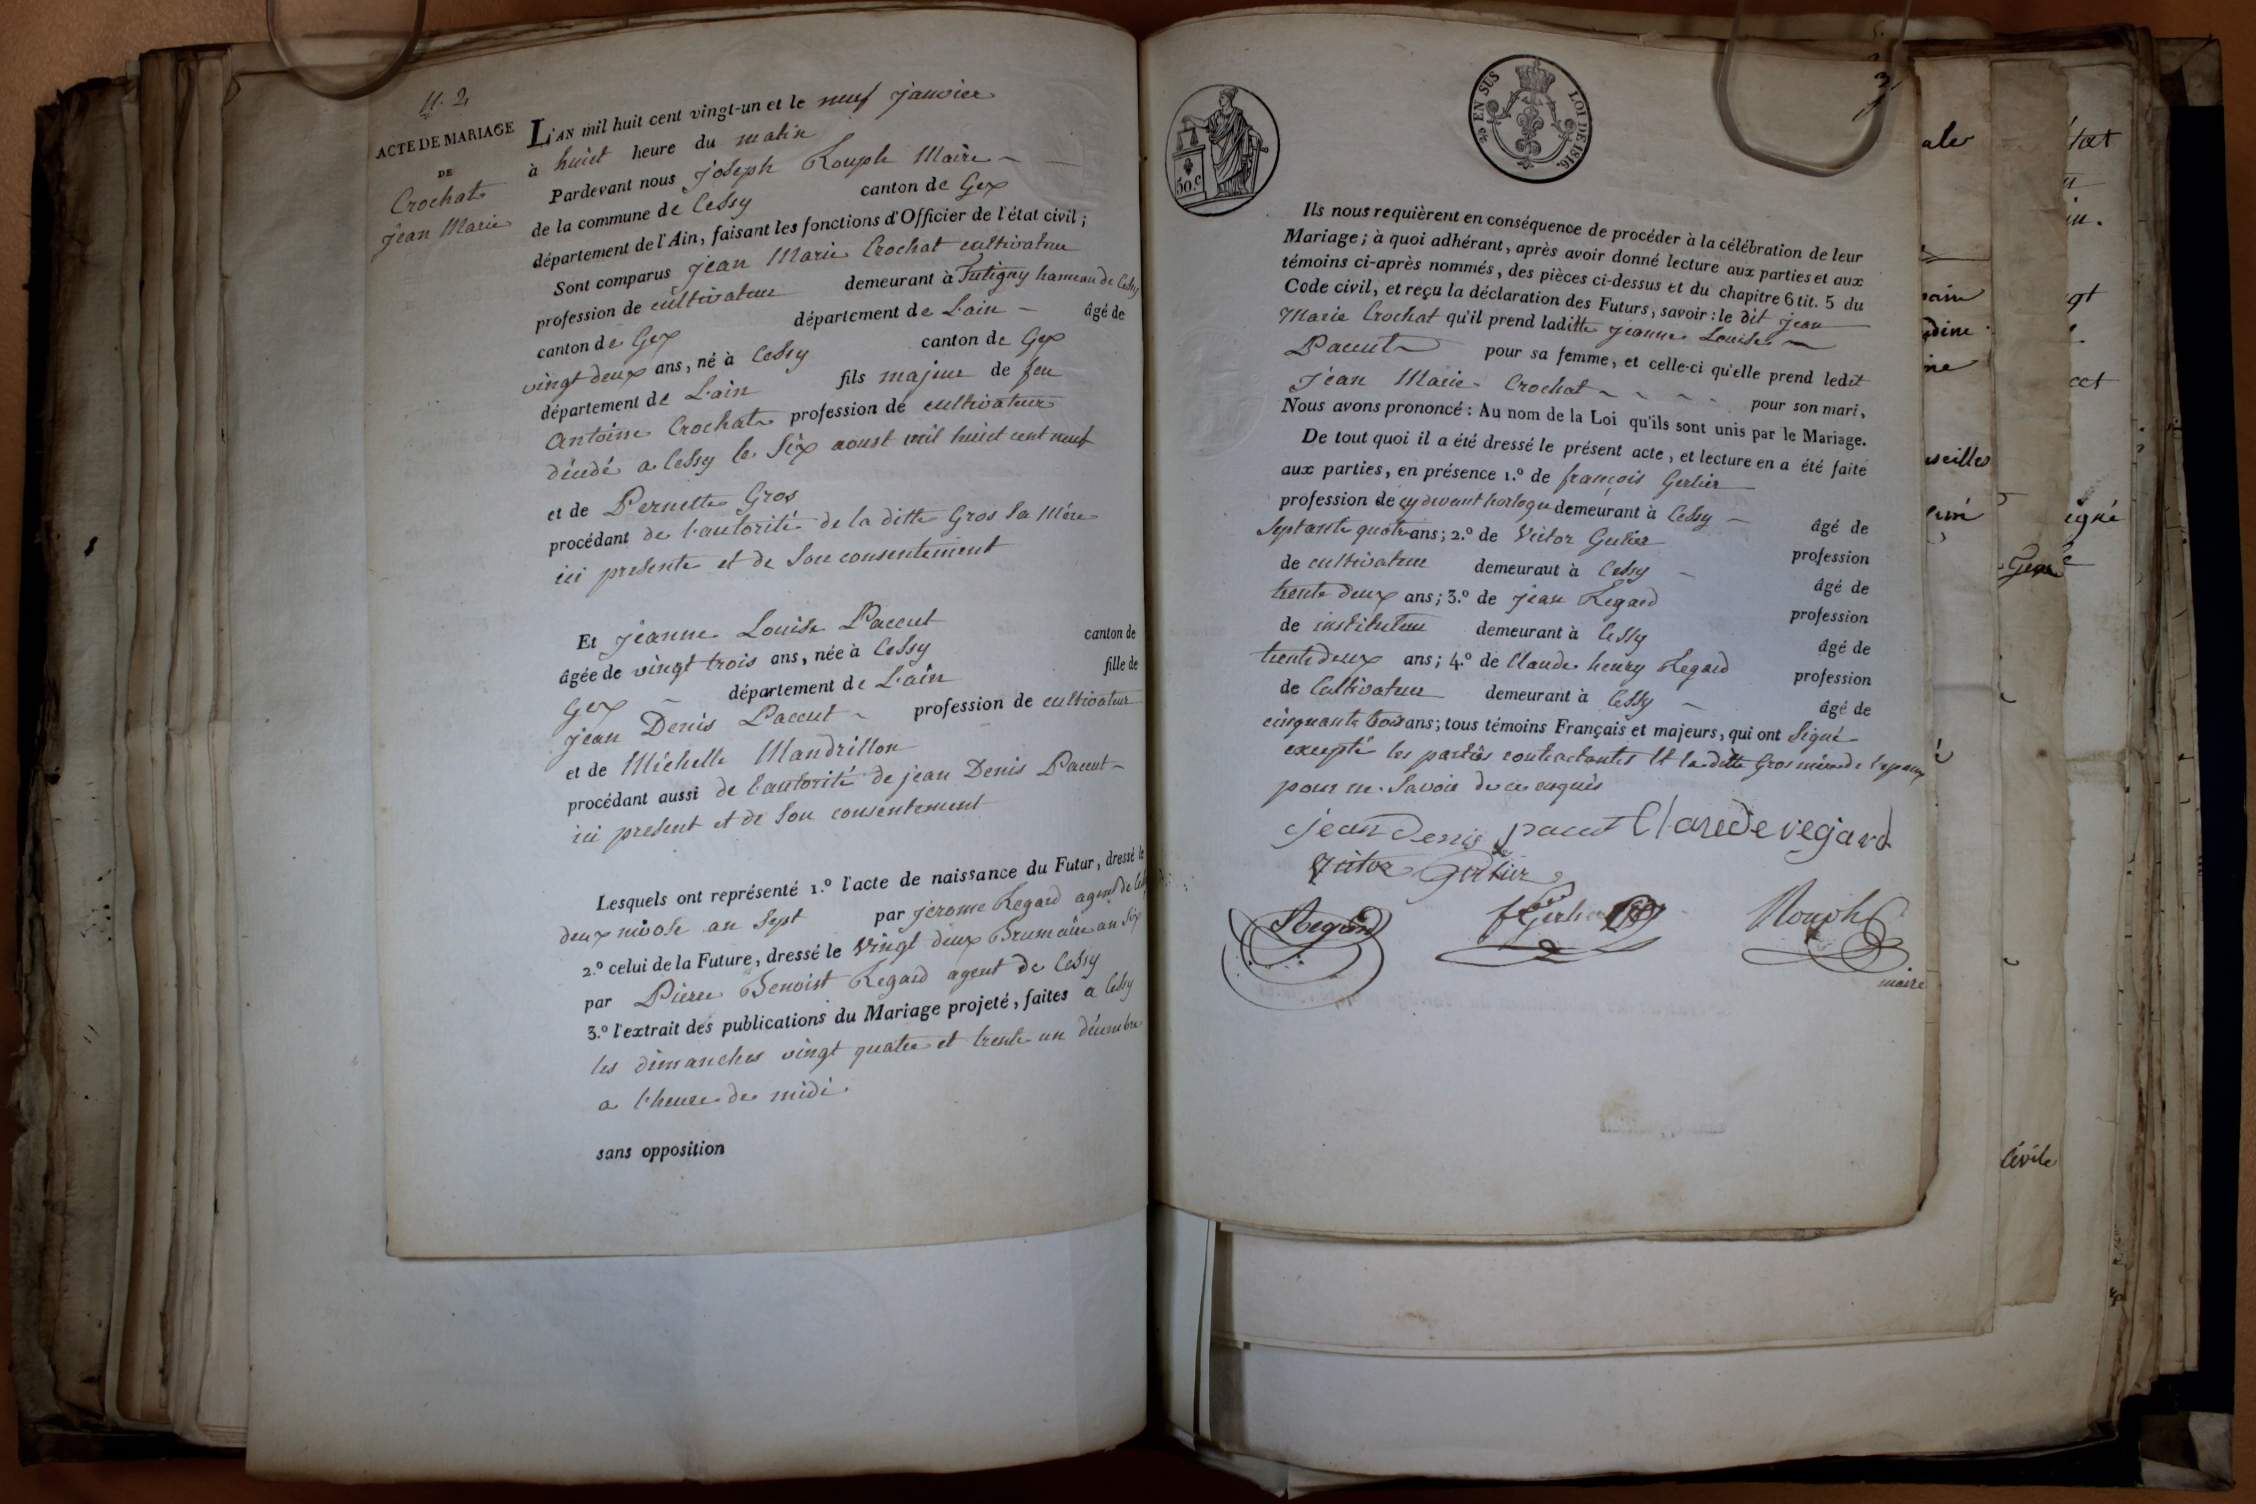 N.° 2
ACTE DE MARIAGE
DE
Crochat
Jean Marie
L'AN mil huit cent vingt-un et le neuf janvier
à huict heure du matin
Pardevant nous joseph Rouph Maire
de la commune de Cessy canton de Gex
département de l'Ain, faisant les fonctions d'Officier de l'état civil;
Sont comparus jean Marie Crochat cultivateur
profession de cultivateur demeurant à Tutigny hameau de Cessy
canton de Gex département de L'ain âgé de
vingt deux ans, né à Cessy canton de Gex
département de L'ain fils majeur de feu
antoine Crochat profession de cultivateur
décédé a Cessy le Six aoust mil huict cent neuf
et de Pernette Gros
procédant de l'autorité de la ditte Gros Sa Mére
ici presente et de Son consentement
Et jeanne Louise Paccut
âgée de vingt trois ans, née à Cessy canton de
Gex département de L'ain fille de
jean Denis Paccut profession de cultivateur
et de Michelle Mandrillon
procédant aussi de l'autorité de jean Denis Paccut
ici present et de Son consentement
Lesquels ont représenté 1.° l'acte de naissance du Futur, dressé le
deux nivose an Sept par jerome Regard agent de
2.° celui de la Future, dressé le Vingt deux Brumaire an Six
par Pierre Benoist Regard agent de Cessy
3.° l'extrait des publications du Mariage projeté, faites a Cessy
les dimanches vingt quatre et trente un décembre
a l'heure de midi.
sans opposition
50.c
EN SUS
LOI DE 1816.
Ils nous requièrent en conséquence de procéder à la célébration de leur
Mariage; à quoi adhérant, après avoir donné lecture aux parties et aux
témoins ci-après nommés, des pièces ci-dessus et du chapitre 6 tit. 5 du
Code civil, et reçu la déclaration des Futurs, savoir: le dit jean
Marie Crochat qu'il prend laditte jeanne Louise
Paccut pour sa femme, et celle-ci qu'elle prend ledit
Jean Marie Crochat pour son mari,
Nous avons prononcé: Au nom de la Loi qu'ils sont unis par le Mariage.
De tout quoi il a été dressé le présent acte, et lecture en a été faite
aux parties, en présence 1.° de françois Gerlier
profession de cy devant horloger demeurant à Cessy âgé de
Septante quatre ans; 2.° de Victor Gerlier profession
de cultivateur demeurant à Cessy âgé de
trente deux ans; 3.° de jean Regard profession
de instituteur demeurant à Cessy âgé de
trente deux ans; 4.° de Claude henry Regard profession
de Cultivateur demeurant à Cessy âgé de
cinquante trois ans; tous témoins Français et majeurs, qui ont Signé
excepté les parties contractantes et la ditte Gros mère de l'epoux
pour ne Savoir de ce enquis
jean Denis paccut Claude regard
Victor Gerlier
Regard f Gerlier Rouph
maire
Civile